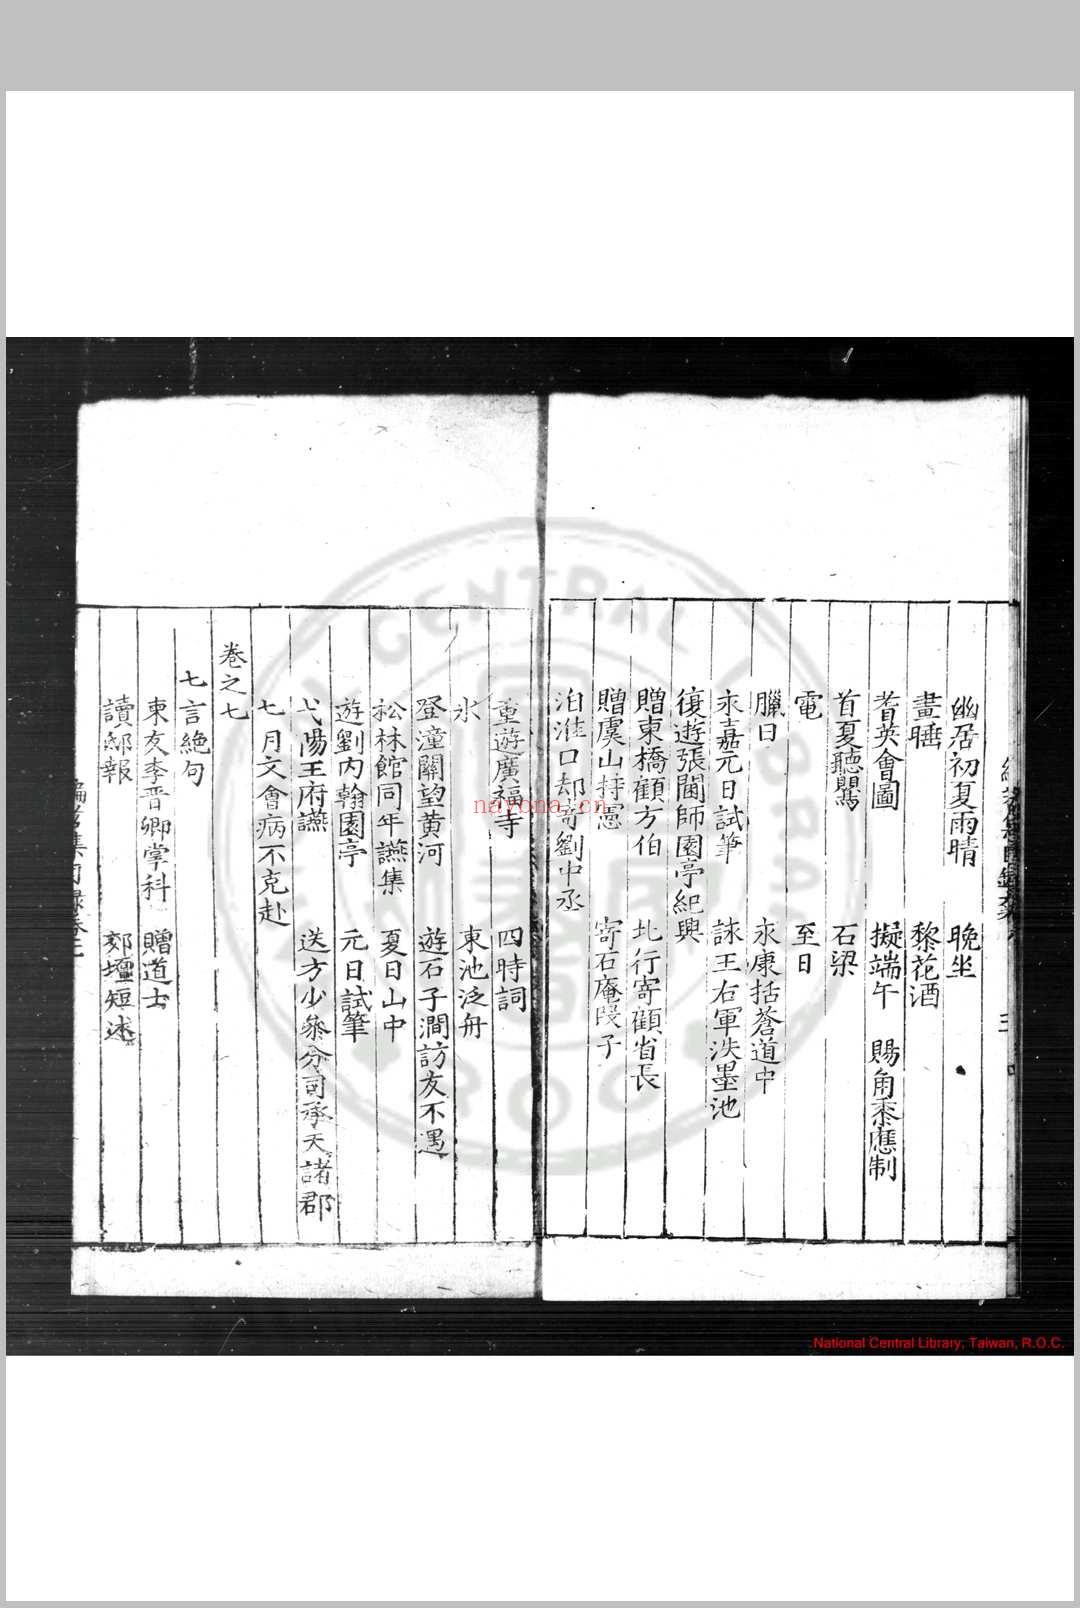 幽居初夏雨晴　晚坐
晝睡　黎花酒
耆英會圖　擬端午　賜角黍應制
首夏聽鶯　石梁
電　至日
臘日　永康括蒼道中
永嘉元日試筆　詠王右軍洗墨池
復遊張閫師園亭紀興
贈東橋顧方伯　北行寄顧省長
贈虞山持憲　寄石庵段子
泊淮口却寄劉中丞
重遊廣福寺　四時詞
氷　東池泛舟
登潼關望黄河　遊石子澗訪友不遇
松林館同年讌集　夏日山中
遊劉内翰園亭　元日試筆
弋陽王府讌　送方少參分司承天諸郡
七月文會病不克赴
卷之七
七言絶句
東友李晋卿掌科　贈道士
讀邸報　郊壇短述
nayona.cn
CENTRAL LIBRARY
ROC
National Central Library, Taiwan, R.O.C.